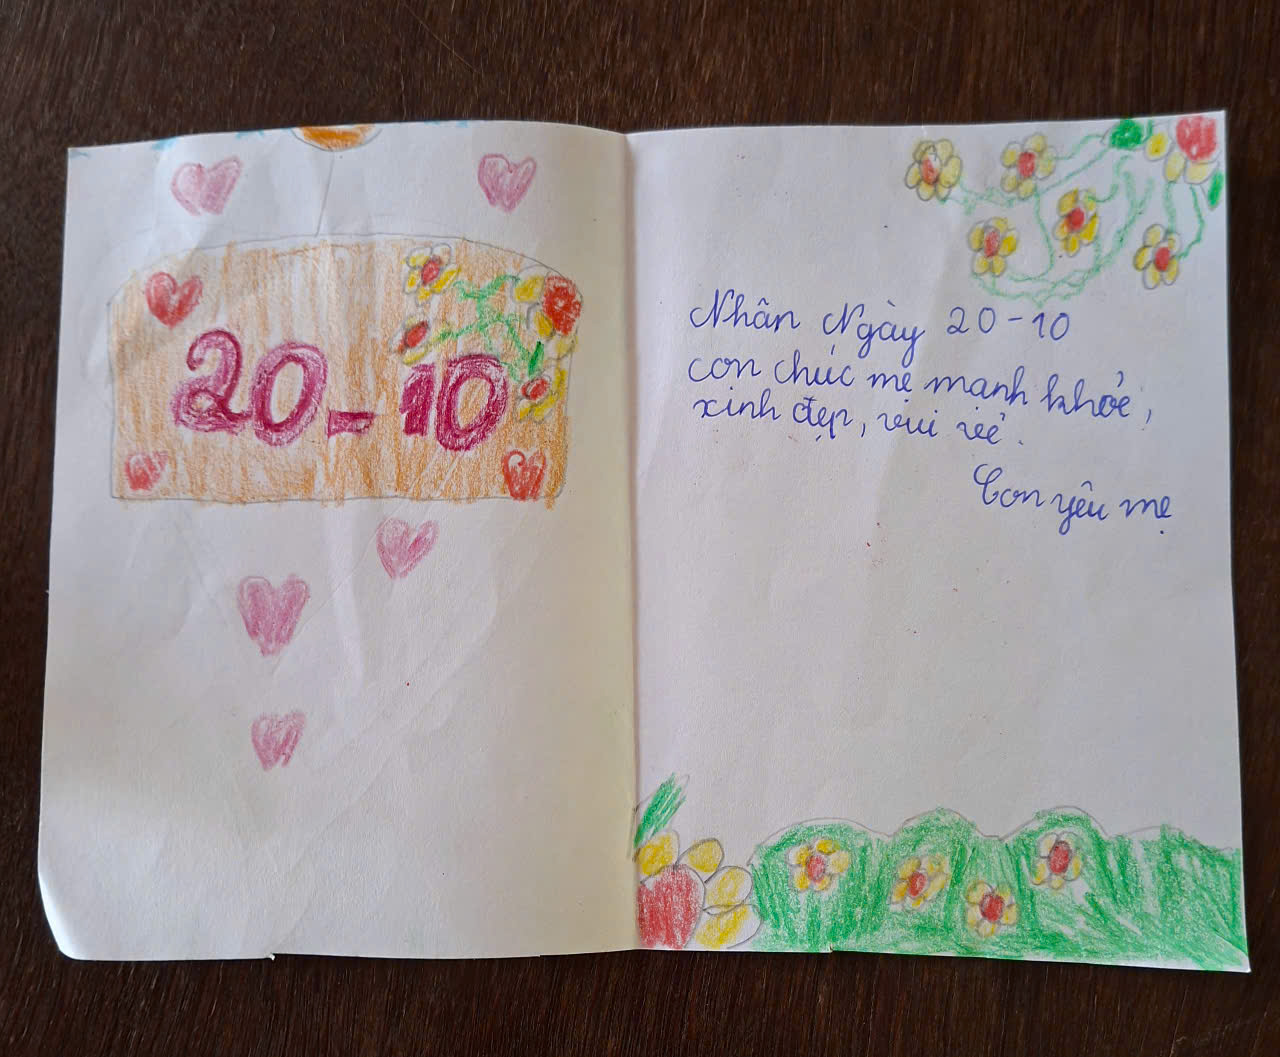 20-10
Nhân Ngày 20-10
con chúc mẹ mạnh khỏe,
xinh đẹp, vui vẻ.
Con yêu mẹ